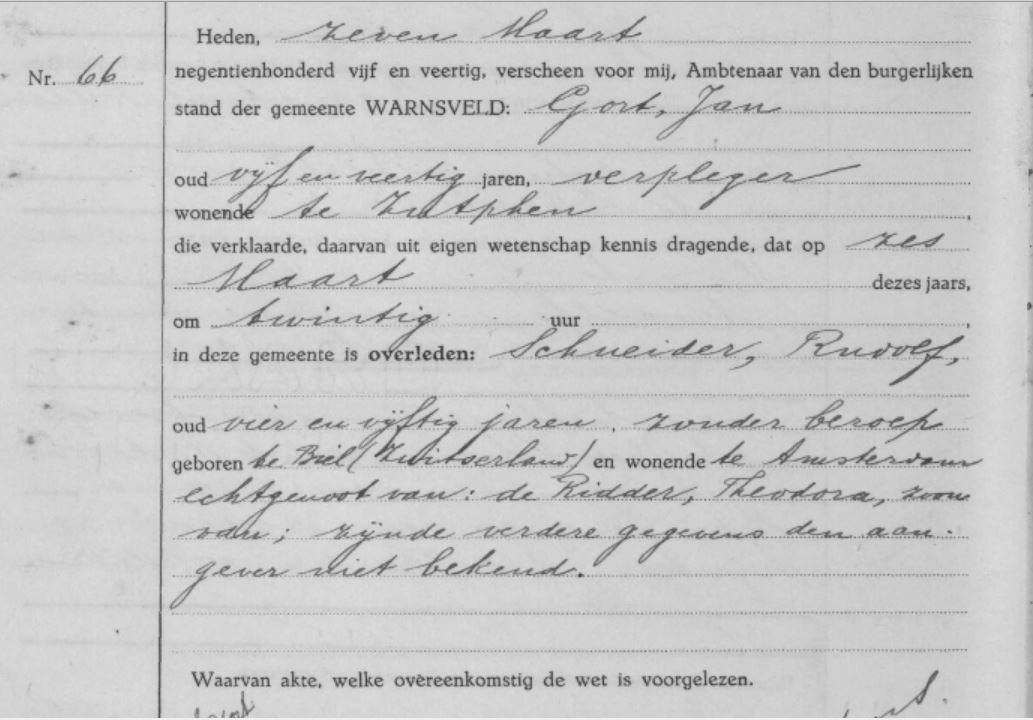 Heden, zeven Maart
Nr. 66
negentienhonderd vijf en veertig, verscheen voor mij, Ambtenaar van den burgerlijken
stand der gemeente WARNSVELD: Gort, Jan
oud vijf en veertig jaren, verpleger
wonende te Zutphen,
die verklaarde, daarvan uit eigen wetenschap kennis dragende, dat op zes
Maart dezes jaars,
om twintig uur,
in deze gemeente is overleden: Schneider, Rudolf,
oud vier en vijftig jaren, zonder beroep
geboren te Biel (Zwitserland) en wonende te Amsterdam
echtgenoot van: de Ridder, Theodora, zoon
van; zijnde verdere gegevens den aan-
gever niet bekend.
Waarvan akte, welke overeenkomstig de wet is voorgelezen.